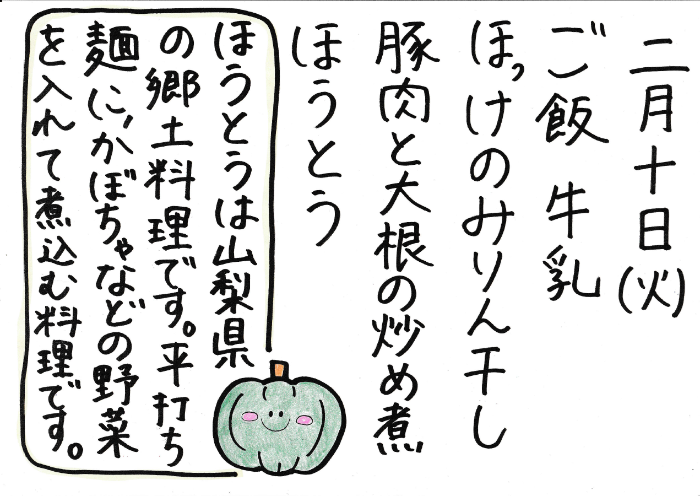 二月十日(火)
ご飯 牛乳
ほっけのみりん干し
豚肉と大根の炒め煮
ほうとう
ほうとうは山梨県
の郷土料理です。平打ち
麺に、かぼちゃなどの野菜
を入れて煮込む料理です。